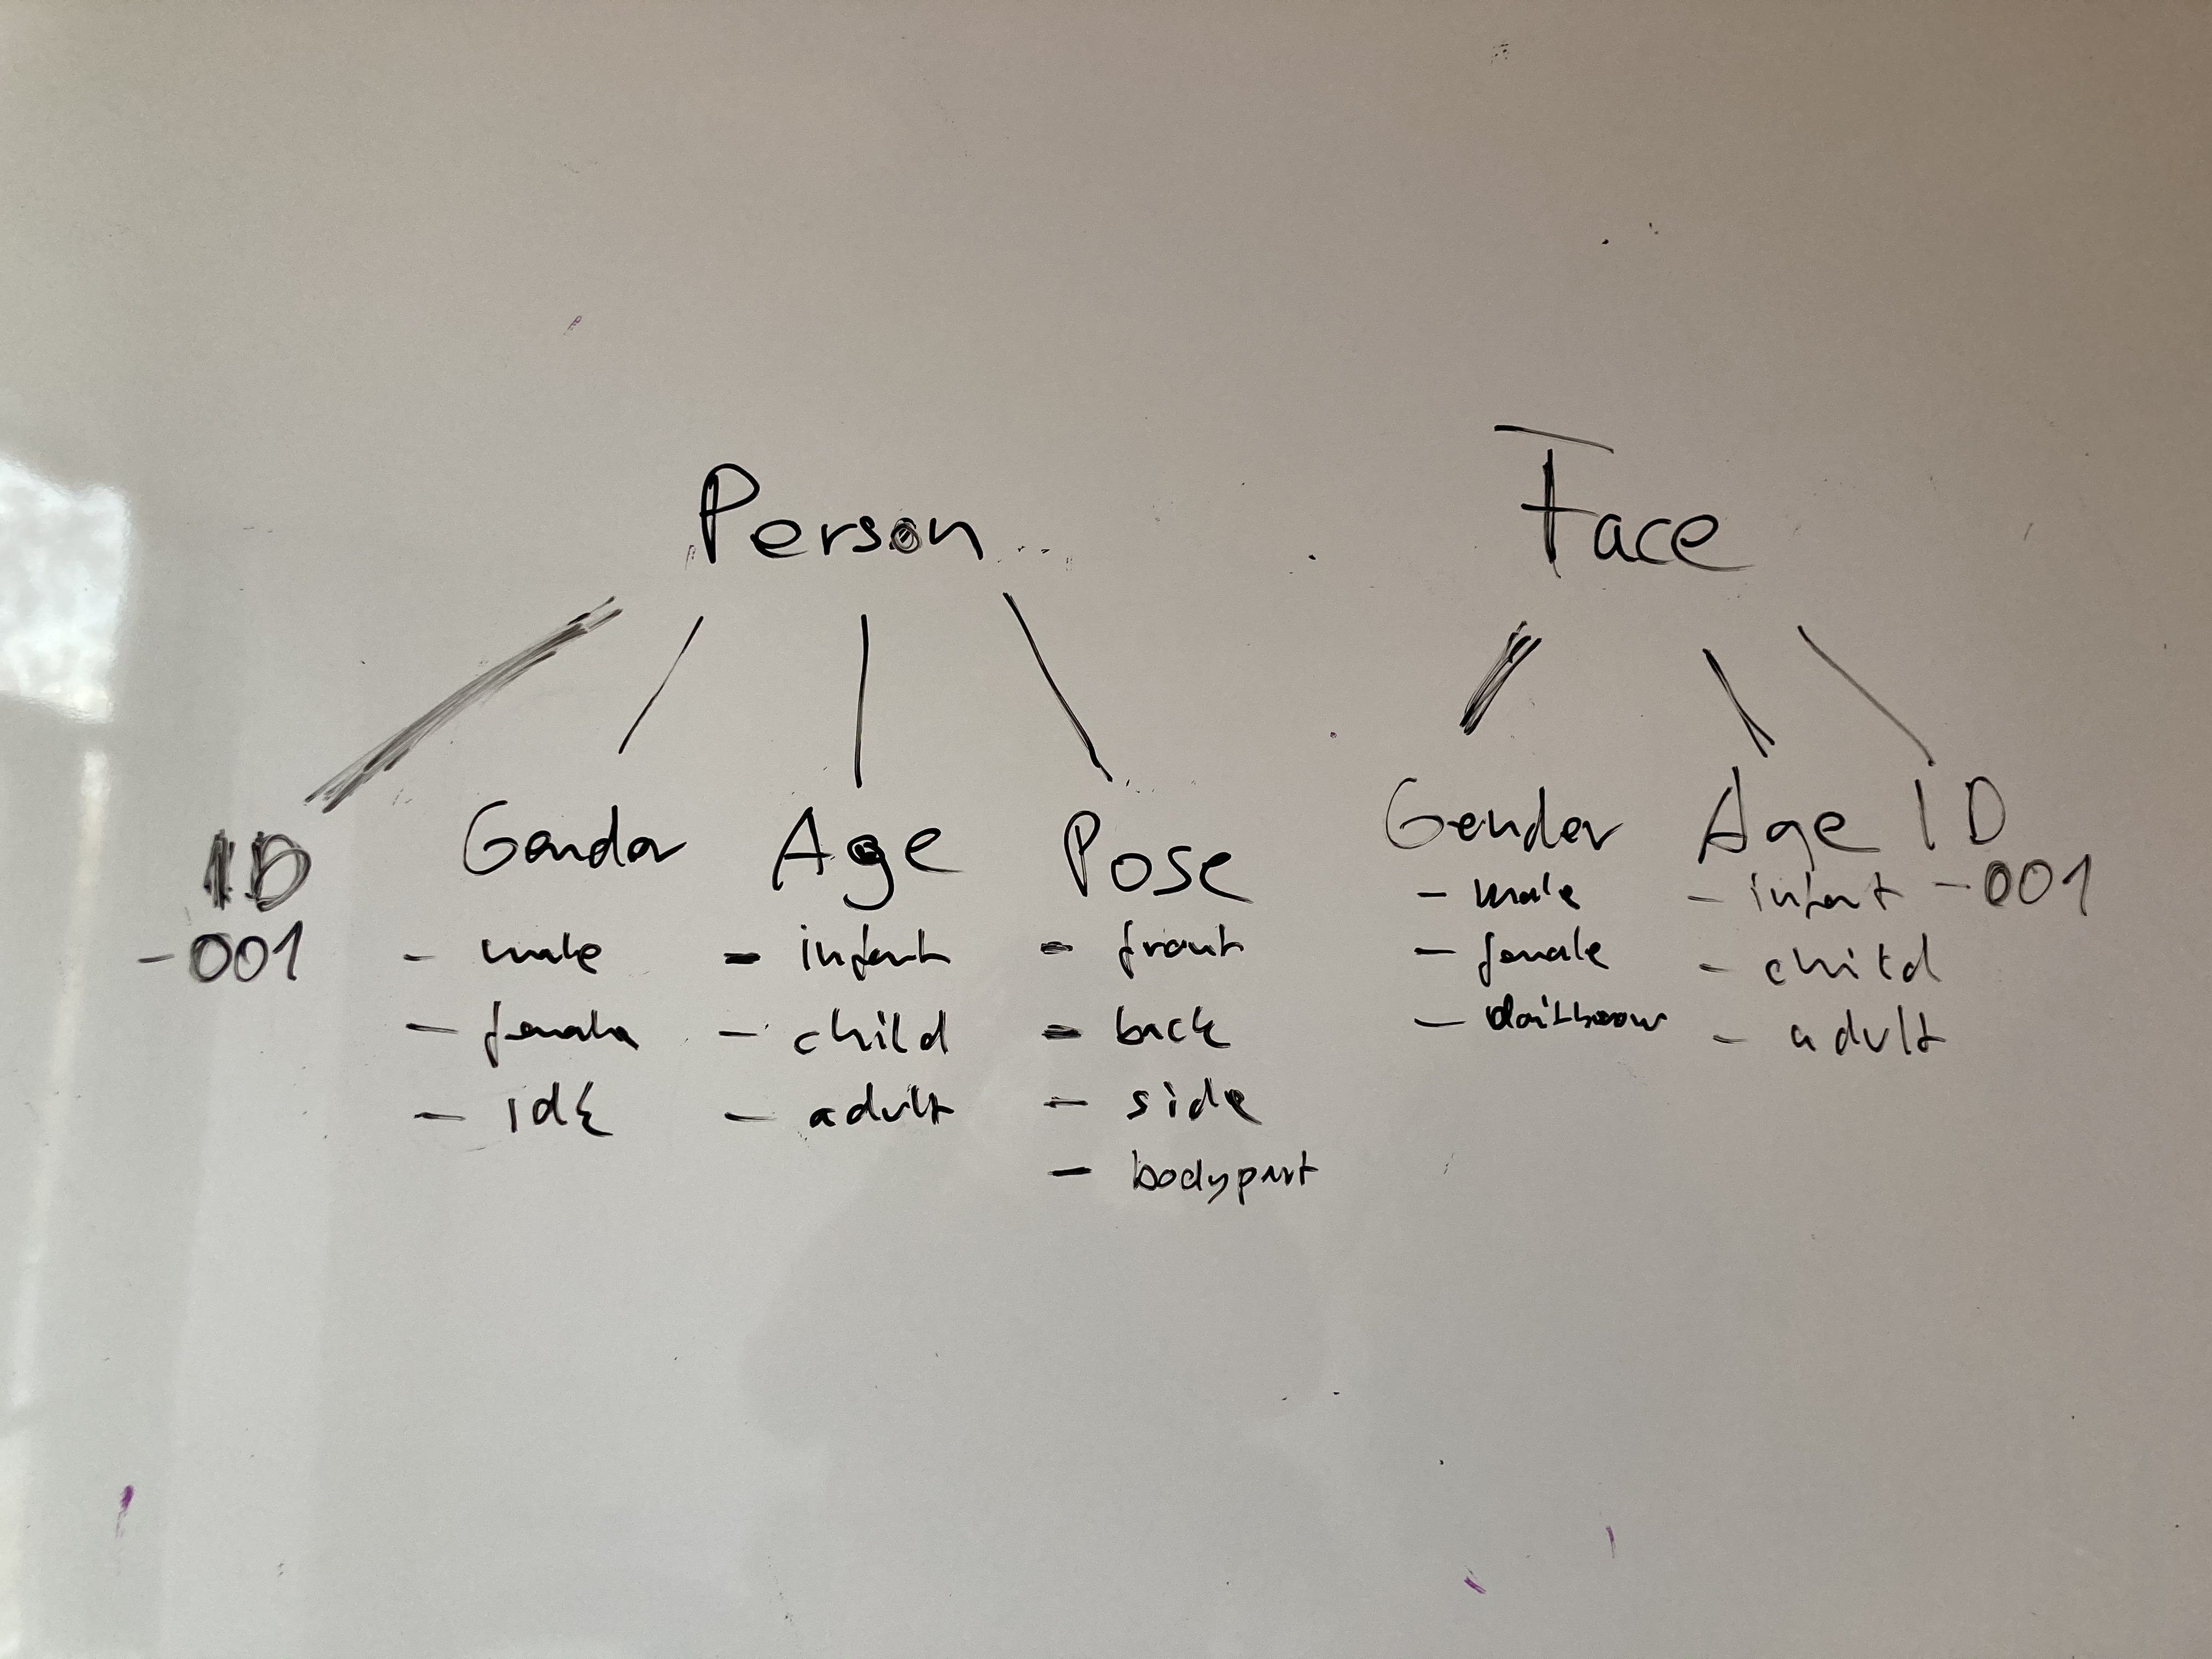 Person
Face
ID
-001
Gender
- male
- female
- idk
Age
- infant
- child
- adult
Pose
- front
- back
- side
- bodypart
Gender
- male
- female
Age
- infant
- child
- adult
ID
-001